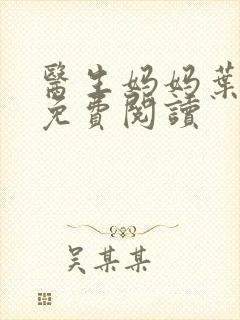 醫生妈妈葉
免費閱讀
吴某某